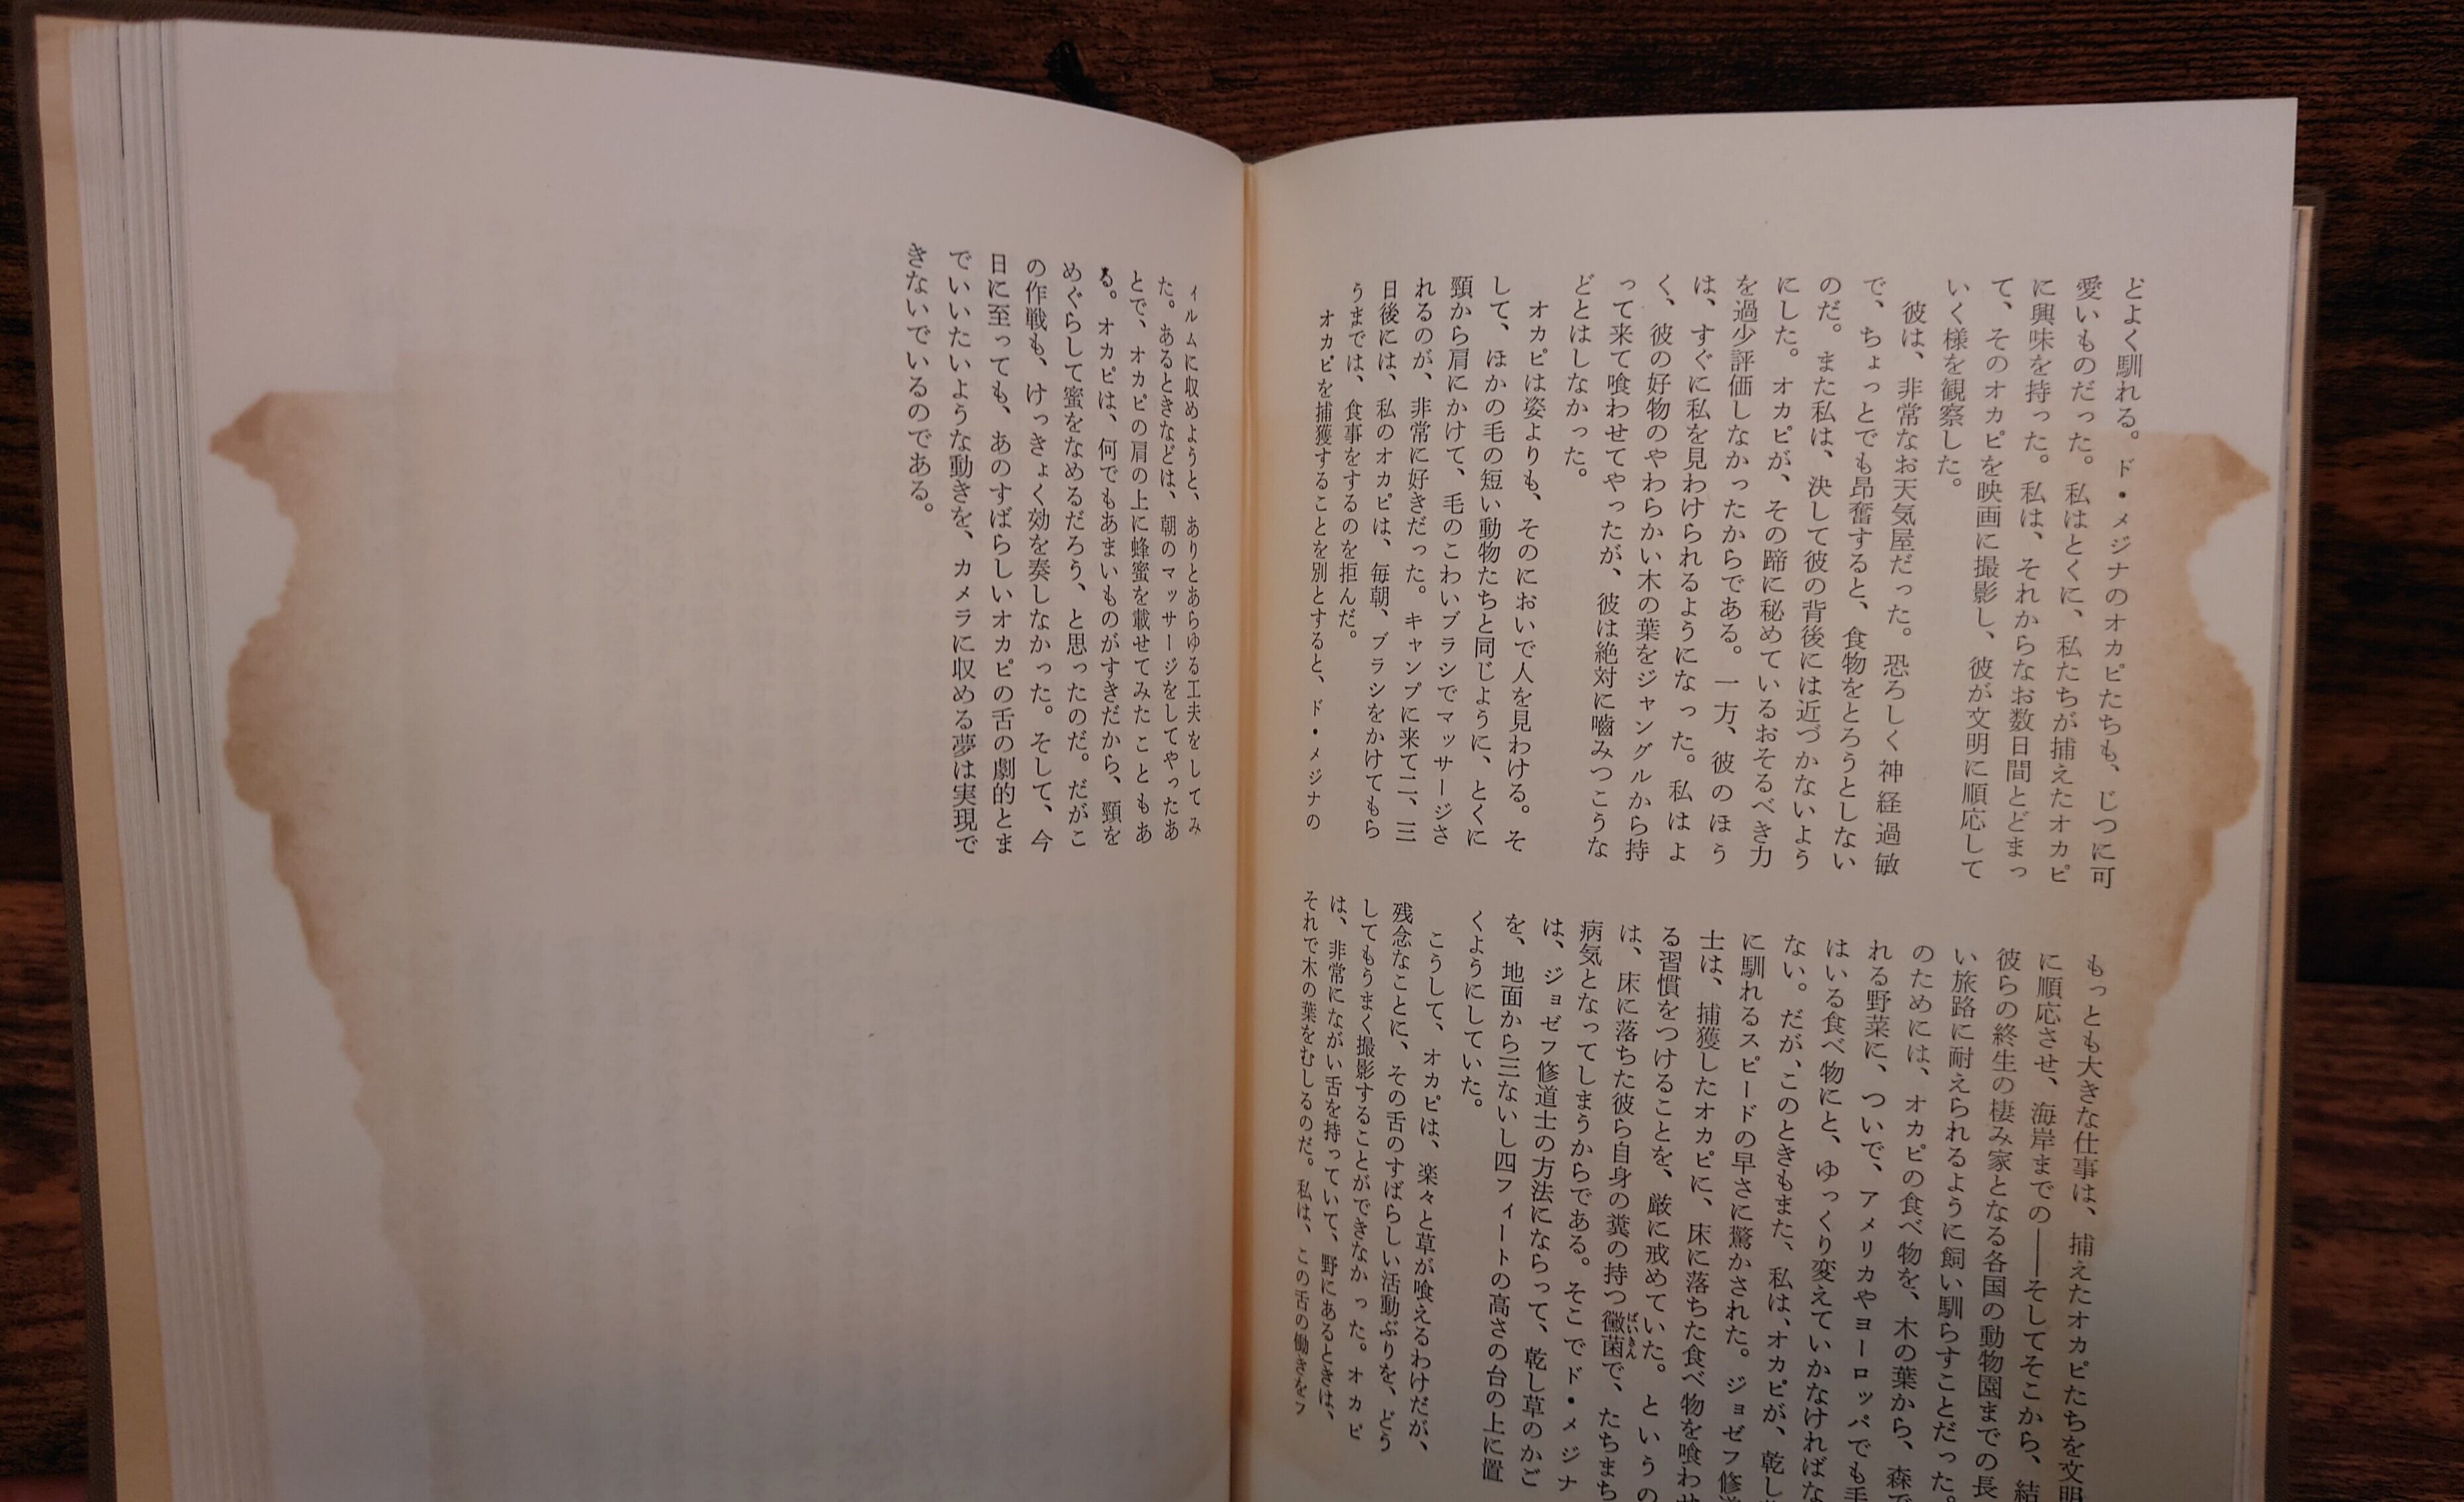 どよく馴れる。ド・メジナのオカピたちも、じつに可
愛いものだった。私はとくに、私たちが捕えたオカピ
に興味を持った。私は、それからなお数日間とどまっ
て、そのオカピを映画に撮影し、彼が文明に順応して
いく様を観察した。
彼は、非常なお天気屋だった。恐ろしく神経過敏
で、ちょっとでも昂奮すると、食物をとろうとしない
のだ。また私は、決して彼の背後には近づかないよう
にした。オカピが、その蹄に秘めているおそるべき力
を過少評価しなかったからである。一方、彼のほう
は、すぐに私を見わけられるようになった。私はよ
く、彼の好物のやわらかい木の葉をジャングルから持
って来て喰わせてやったが、彼は絶対に嚙みつこうな
どとはしなかった。
オカピは姿よりも、そのにおいで人を見わける。そ
して、ほかの毛の短い動物たちと同じように、とくに
頸から肩にかけて、毛のこわいブラシでマッサージさ
れるのが、非常に好きだった。キャンプに来て二、三
日後には、私のオカピは、毎朝、ブラシをかけてもら
うまでは、食事をするのを拒んだ。
オカピを捕獲することを別とすると、ド・メジナの
もっとも大きな仕事は、捕えたオカピたちを文明
に順応させ、海岸までの――そしてそこから、結
彼らの終生の棲み家となる各国の動物園までの長
い旅路に耐えられるように飼い馴らすことだった。
のためには、オカピの食べ物を、木の葉から、森で
れる野菜に、ついで、アメリカやヨーロッパでも手
はいる食べ物にと、ゆっくり変えていかなければな
ない。だが、このときもまた、私は、オカピが、乾し
に馴れるスピードの早さに驚かされた。ジョゼフ修
士は、捕獲したオカピに、床に落ちた食べ物を喰わせ
る習慣をつけることを、厳に戒めていた。というの
は、床に落ちた彼ら自身の糞の持つ黴菌で、たちまち
ばいきん
病気となってしまうからである。そこでド・メジナ
は、ジョゼフ修道士の方法にならって、乾し草のかご
を、地面から三ないし四フィートの高さの台の上に置
くようにしていた。
こうして、オカピは、楽々と草が喰えるわけだが、
残念なことに、その舌のすばらしい活動ぶりを、どう
してもうまく撮影することができなかった。オカピ
は、非常にながい舌を持っていて、野にあるときは、
それで木の葉をむしるのだ。私は、この舌の働きをフ
ィルムに収めようと、ありとあらゆる工夫をしてみ
た。あるときなどは、朝のマッサージをしてやったあ
とで、オカピの肩の上に蜂蜜を載せてみたこともあ
る。オカピは、何でもあまいものがすきだから、頸を
めぐらして蜜をなめるだろう、と思ったのだ。だがこ
の作戦も、けっきょく効を奏しなかった。そして、今
日に至っても、あのすばらしいオカピの舌の劇的とま
でいいたいような動きを、カメラに収める夢は実現で
きないでいるのである。